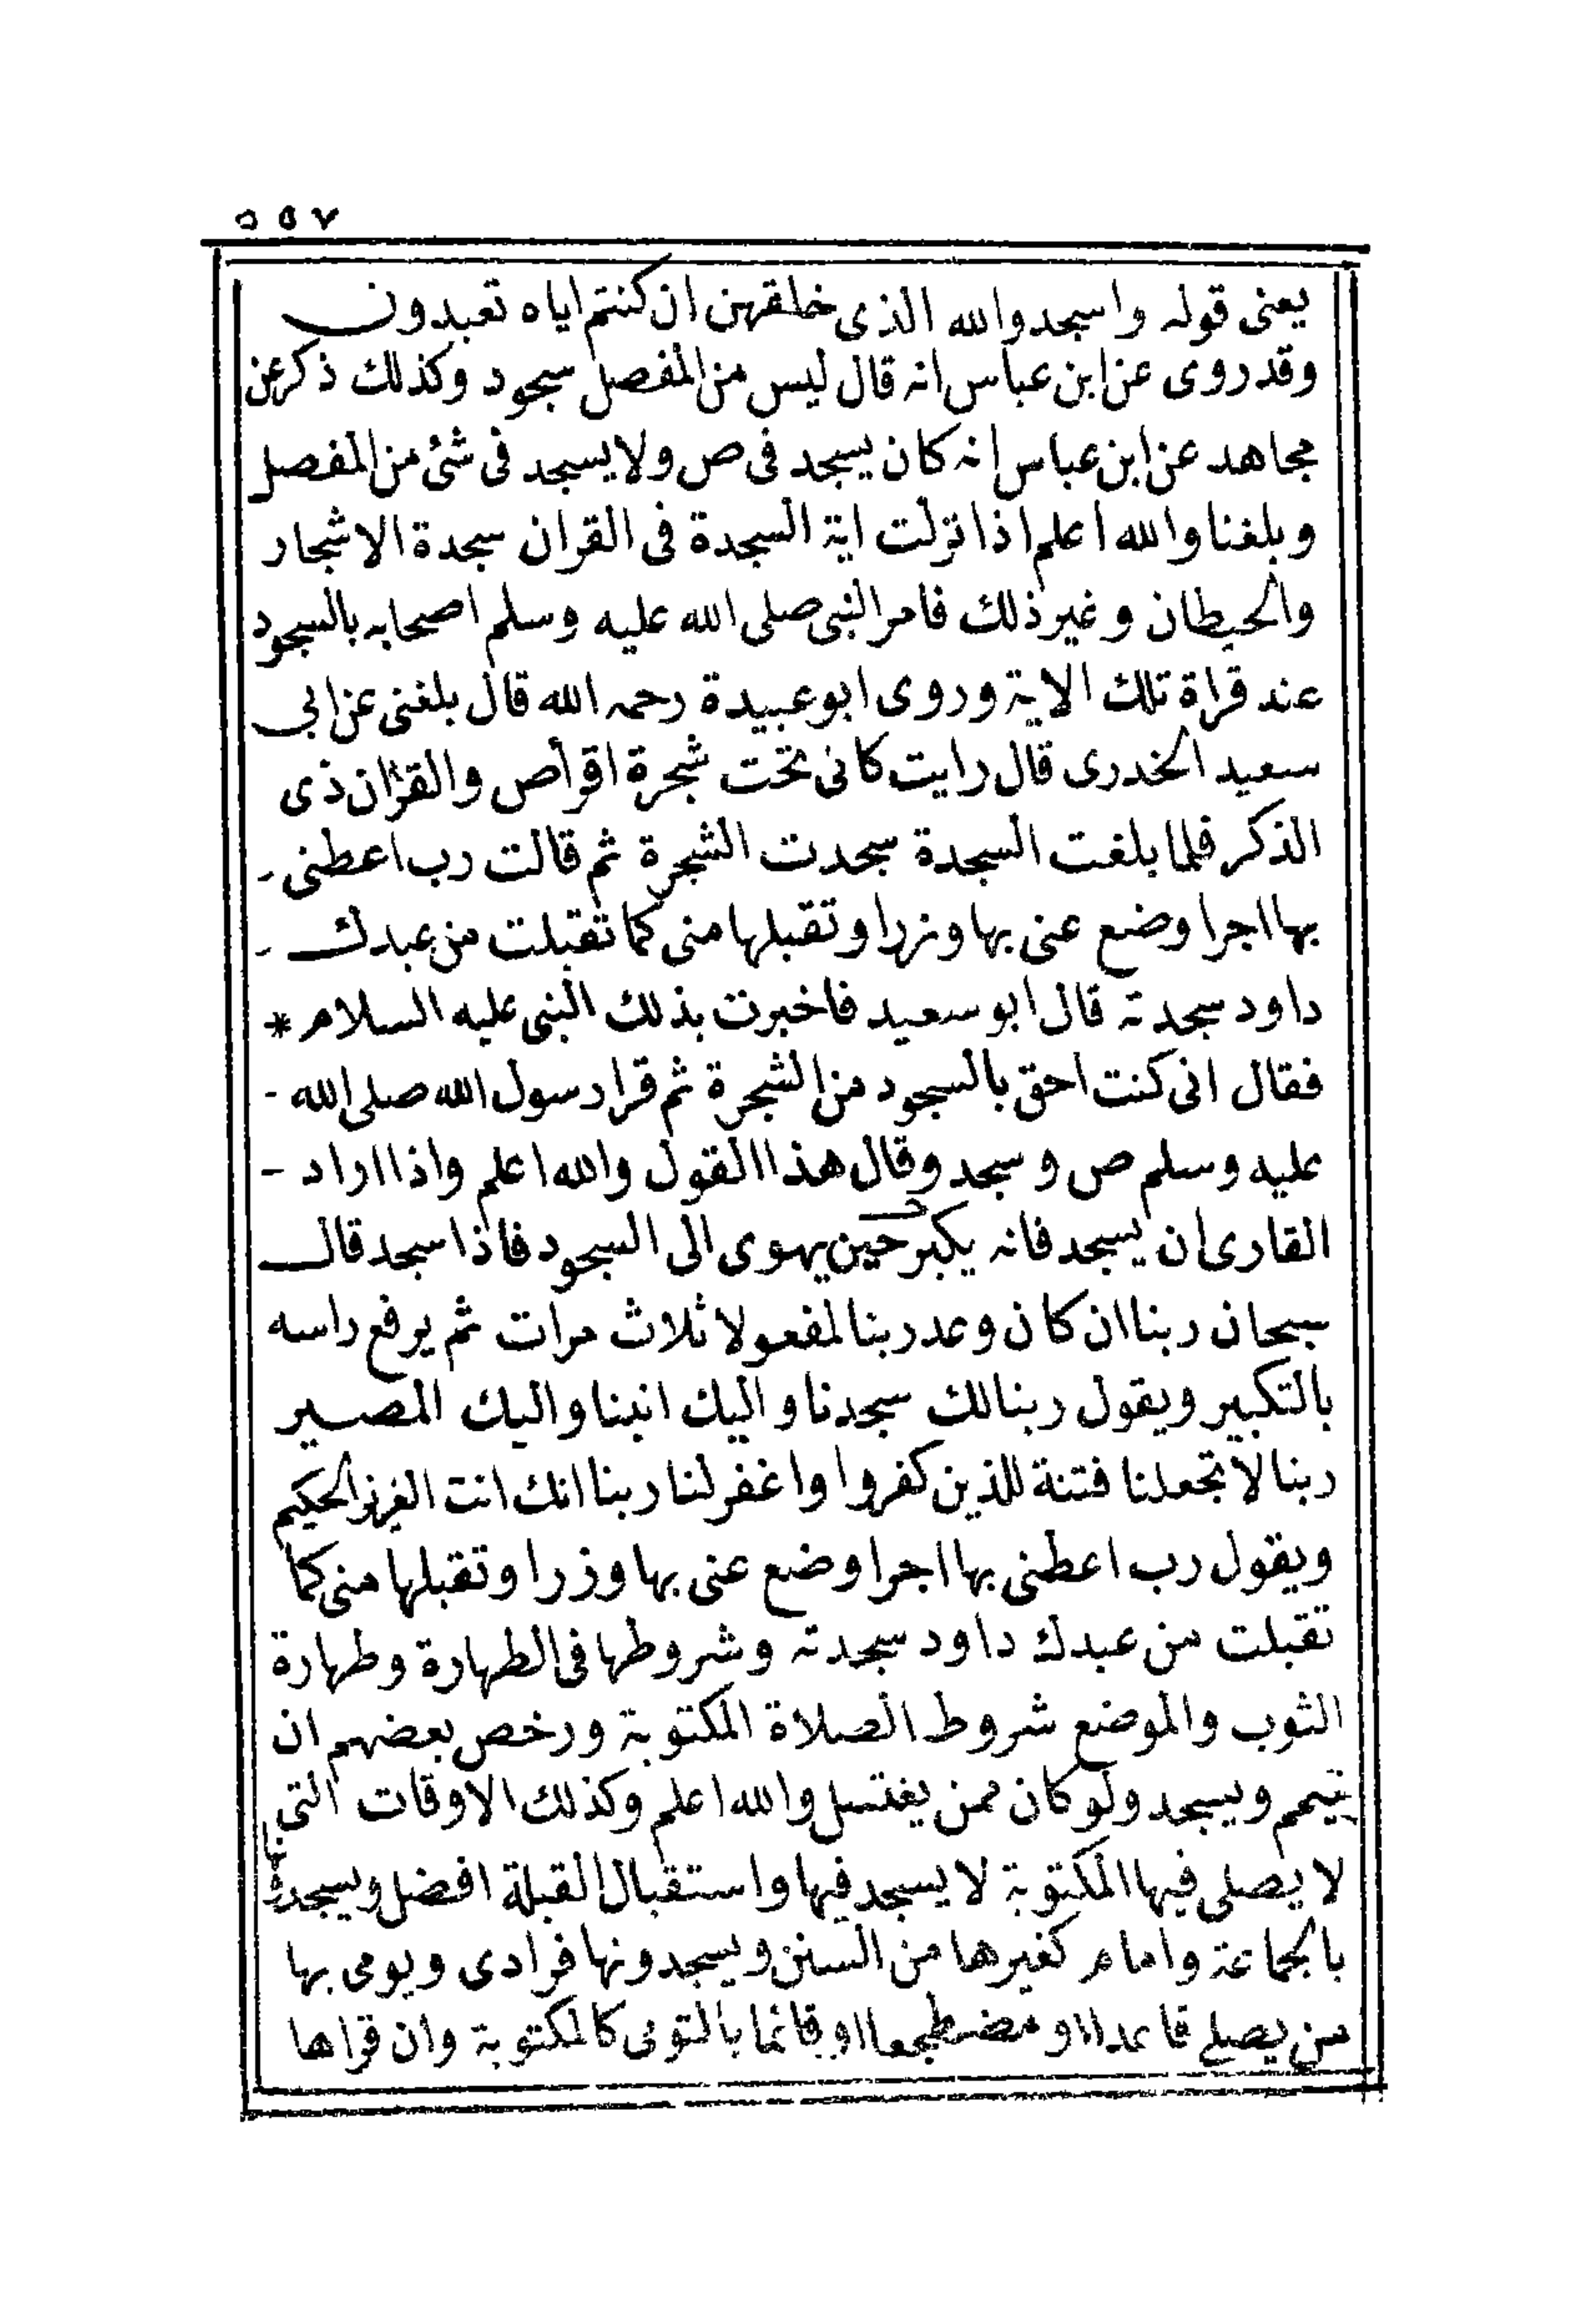 ٥٥٧
يعنى قوله واسجدوالله الذى خلقهن ان كنتم اياه تعبدون
وقد روى عن ابن عباس انه قال ليس من المفصل سجود وكذلك ذكر عن
مجاهد عن ابن عباس انه كان يسجد فى ص ولا يسجد فى شئ من المفصل
وبلغنا والله اعلم اذا نزلت اية السجدة فى القران سجدة الاشجار
والحيطان وغير ذلك فامر النبى صلى الله عليه وسلم اصحابه بالسجود
عند قراة تلك الاية وروى ابو عبيدة رحمه الله قال بلغنى عن ابى
سعيد الخدرى قال رايت كانى تحت شجرة اقرأ ص والقرٰان ذى
الذكر فلما بلغت السجدة سجدت الشجرة ثم قالت رب اعطنى -
بها اجرا وضع عنى بها وزرا وتقبلها منى كما تقبلت من عبدك -
داود سجدته قال ابو سعيد فاخبرت بذلك النبى عليه السلام *
فقال انى كنت احق بالسجود من الشجرة ثم قرا رسول الله صلى الله -
عليه وسلم ص وسجد وقال هذا القول والله اعلم واذا اراد -
القارى ان يسجد فانه يكبر حين يهوى الى السجود فاذا سجد قال
سبحان ربنا ان كان وعد ربنا لمفعولا ثلاث مرات ثم يرفع راسه
بالتكبير ويقول ربنا لك سجدنا واليك انبنا واليك المصير
ربنا لا تجعلنا فتنة للذين كفروا واغفر لنا ربنا انك انت العزيز الحكيم
ويقول رب اعطنى بها اجرا وضع عنى بها وزرا وتقبلها منى كما
تقبلت من عبدك داود سجدته وشروطها فى الطهارة وطهارة
الثوب والموضع شروط الصلاة المكتوبة ورخص بعضهم ان
يتيمم ويسجد ولو كان ممن يغتسل والله اعلم وكذلك الاوقات التى
لا يصلى فيها المكتوبة لا يسجد فيها واستقبال القبلة افضل ويسجدونها
بالجماعة وامام كغيرها من السنن ويسجدونها فرادى ويومى بها
من يصلى قاعدا او مضطجعا او قائما بالتومى كالمكتوبة وان قراها